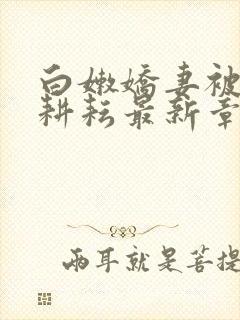 白嫩嬌妻被
耕耘最新章
兩耳就是菩提